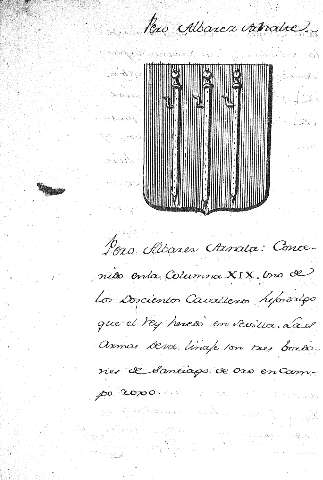 Pero Albarez Aznalte.
Pero Albarez Aznalte: Conte-
nido en la Columna XIX. Uno de
los Doscientos Cavalleros hijosdalgo
que el Rey heredó en Sevilla. Las
Armas de su linaje son tres bordo-
nes de Santiago de Oro en Cam-
po roxo.